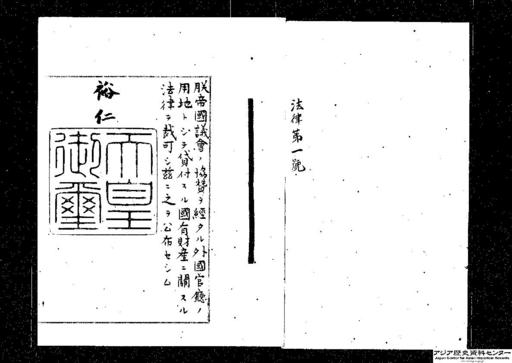 法律第一號
朕帝國議會ノ協贊ヲ經タル外國官廳ノ
用地トシテ貸付スル國有財產ニ關スル
法律ヲ裁可シ茲ニ之ヲ公布セシム
裕仁
天皇
御璽
アジア歴史資料センター
Japan Center for Asian Historical Records